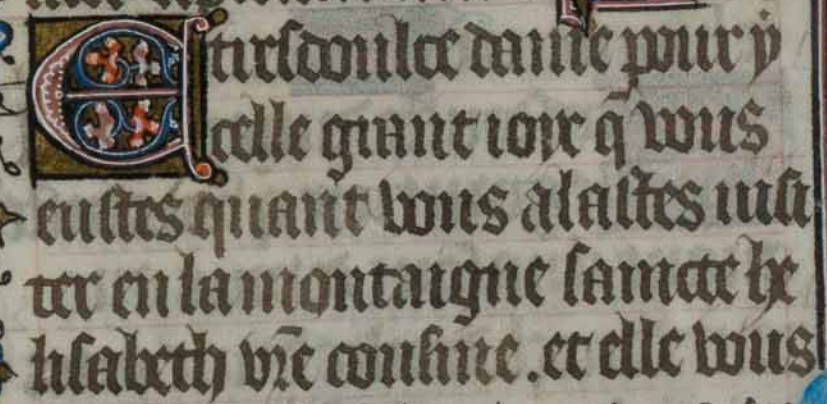 Etresdoulce dame pour y
celle grant ioie q̄ vous
eustes quant vous alastes uisi
ter en la montaigne saincte he
lisabeth vr̄e cousine . et elle vous